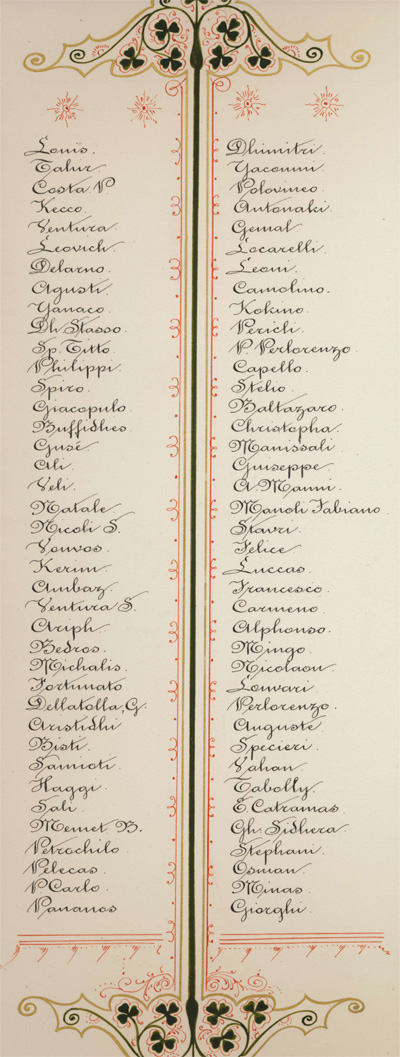 Louis.
Tahir.
Costa P.
Kecco.
Ventura.
Leovich.
Delarno.
Agusti.
Yanaco.
Dh. Stasso.
Sp. Titto.
Philippi.
Spiro.
Giacopulo.
Buffidhes.
Gusé.
Ali.
Veli.
Natale.
Nicoli S.
Vouvos.
Kerim.
Ambaz.
Ventura S.
Ariph.
Bedros.
Michalis.
Fortunato
Dellatolla, G.
Aristidhi
Bisti.
Samioti.
Haggi.
Sali.
Memet B.
Petrochilo.
Pelecas.
P Carlo.
Pananos
Dhimitri.
Yacoumi.
Polovineo.
Antonaki.
Gemal.
Locarelli.
Leoni.
Camolino.
Kokino.
Pericli.
P. Perlorenzo.
Capello.
Stelio.
Baltazaro.
Christopha.
Manissali.
Guiseppe.
A. Manni.
Manoli Fabiano.
Stavri.
Felice.
Luccas.
Francesco.
Carmeno.
Alphonso.
Mingo.
Nicolaou.
Louvari.
Perlorenzo.
Auguste.
Specieri.
Vahan.
Tabolly.
E. Catramas.
Gh. Sidhera.
Stephani.
Osman.
Minas.
Giorghi.